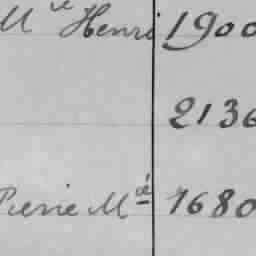 Henri 1900
2136
Pierre Md 1680